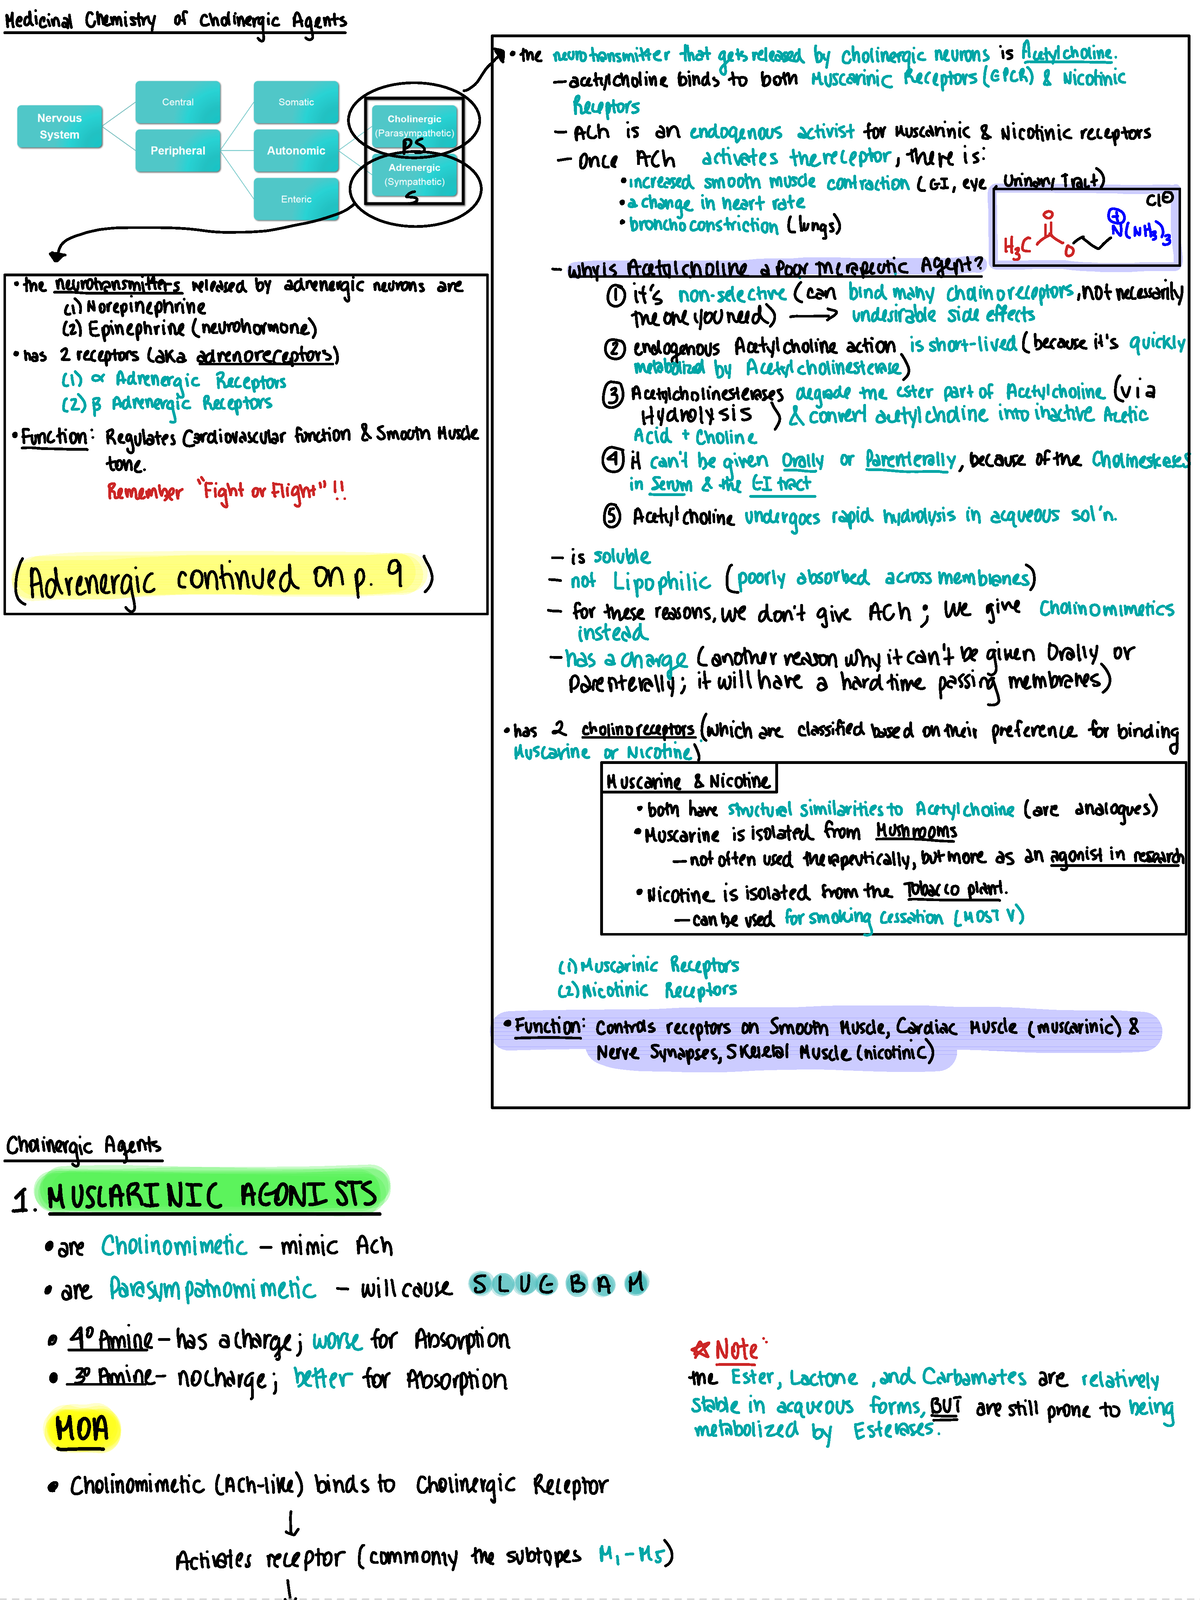 Medicinal Chemistry of Cholinergic Agents
Nervous
System
Central
Peripheral
Somatic
Autonomic
Enteric
Cholinergic
(Parasympathetic)
PS
Adrenergic
(Sympathetic)
S
• the neurotransmitters released by adrenergic neurons are
(1) Norepinephrine
(2) Epinephrine (neurohormone)
• has 2 receptors (aka adrenoreceptors)
(1) α Adrenergic Receptors
(2) β Adrenergic Receptors
• Function: Regulates Cardiovascular function & Smooth Muscle
tone.
Remember "Fight or Flight"!!
(Adrenergic continued on p. 9)
• the neurotransmitter that gets released by cholinergic neurons is Acetylcholine.
– acetylcholine binds to both Muscarinic Receptors (GPCR) & Nicotinic
Receptors
– ACh is an endogenous activist for Muscarinic & Nicotinic receptors
– Once ACh activates the receptor, there is:
• increased smooth muscle contraction (GI, eye, Urinary Tract)
• a change in heart rate
• bronchoconstriction (lungs)
Cl⊖
H₃C O O ⊕ N(NH₃)₃
– Why Is Acetylcholine a Poor Therapeutic Agent?
① it's non-selective (can bind many cholinoreceptors, not necessarily
the one you need) → undesirable side effects
② endogenous Acetylcholine action is short-lived (because it's quickly
metabolized by Acetylcholinesterase)
③ Acetylcholinesterases degrade the ester part of Acetylcholine (via
Hydrolysis) & convert acetylcholine into inactive Acetic
Acid + Choline
④ it can't be given Orally or Parenterally, because of the Cholinesterases
in Serum & the GI tract
⑤ Acetylcholine undergoes rapid hydrolysis in acqueous sol'n.
– is soluble
– not Lipophilic (poorly absorbed across membranes)
– for these reasons, we don't give ACh; we give Cholinomimetics
instead
– has a charge (another reason why it can't be given Orally or
Parenterally; it will have a hard time passing membranes)
• has 2 cholinoreceptors (which are classified based on their preference for binding
Muscarine or Nicotine)
Muscarine & Nicotine
• both have structural similarities to Acetylcholine (are analogues)
• Muscarine is isolated from Mushrooms
– not often used therapeutically, but more as an agonist in research
• Nicotine is isolated from the Tobacco plant.
– can be used for smoking cessation (MOSTY)
(1) Muscarinic Receptors
(2) Nicotinic Receptors
• Function: Controls receptors on Smooth Muscle, Cardiac Muscle (muscarinic) &
Nerve Synapses, Skeletal Muscle (nicotinic)
Cholinergic Agents
1. MUSCARINIC AGONISTS
• are Cholinomimetic – mimic Ach
• are Parasympathomimetic – will cause SLUGBAM
• 4° Amine – has a charge; worse for Absorption
• 3° Amine – no charge; better for Absorption
☆ Note:
the Ester, Lactone, and Carbamates are relatively
stable in acqueous forms, BUT are still prone to being
metabolized by Esterases.
MOA
• Cholinomimetic (ACh-like) binds to Cholinergic Receptor
↓
Activates receptor (commonly the subtopes M₁–M₅)
↓